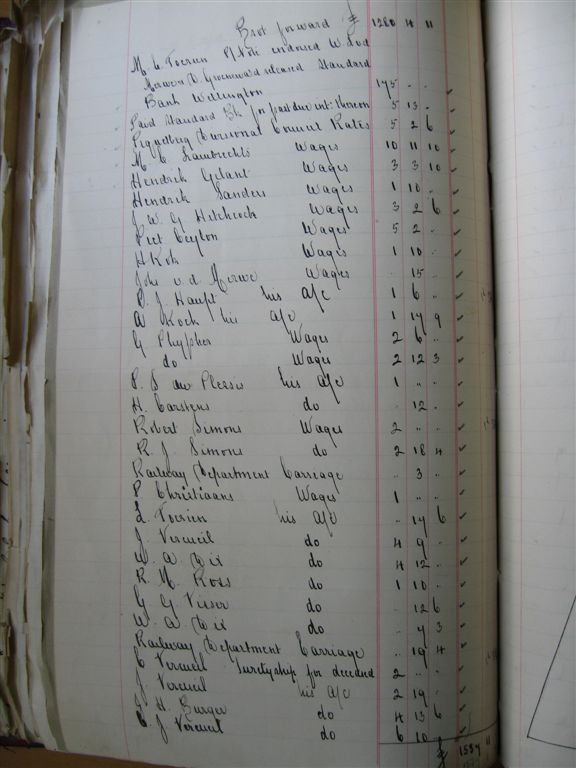 Brot forward £ 1280 4 11
M. C. Toerien P/Note endorsed W. Dod
Bank Wellington 175 " "
Paid Standard Bk for past due int: thereon 5 13 "
Piquetberg Divisional Council Rates 5 2 6
M. C. Lambrechts Wages 10 11 10
Hendrick Gelant Wages 3 3 10
Hendrick Sanders Wages 1 10 "
J. W. G. Hitchcock Wages 3 2 6
Piet Ceylon Wages 5 2 "
H Kok Wages 1 10 "
Johs v. d. Merwe Wages " 15 "
D. J. Haupt his a/c 1 6 "
A. Koch his a/c 1 17 9
G. Phypher Wages 2 6 "
do Wages 2 12 3
P. S. du Plessis his a/c 1 " "
H. Carstens do " 12 "
Robert Simons Wages 2 " "
R. J. Simons do 2 18 4
Railway Department Carriage " 3 "
P. Christiaans Wages 1 " "
L. Toerien his a/c " 17 6
J. Vercueil do 4 9 "
W. A. Dix do 4 12 "
R. M. Ross do 1 10 "
G. G. Visser do " 12 6
W. A. Dix do " 7 3
Railway Department Carriage " 19 4
C Vercueil Suretyship for deceased 2 " "
J. Vercueil his a/c 2 19 "
J. H. Burger do 4 13 6
J. Vercueil do 6 10
£ 1537 11